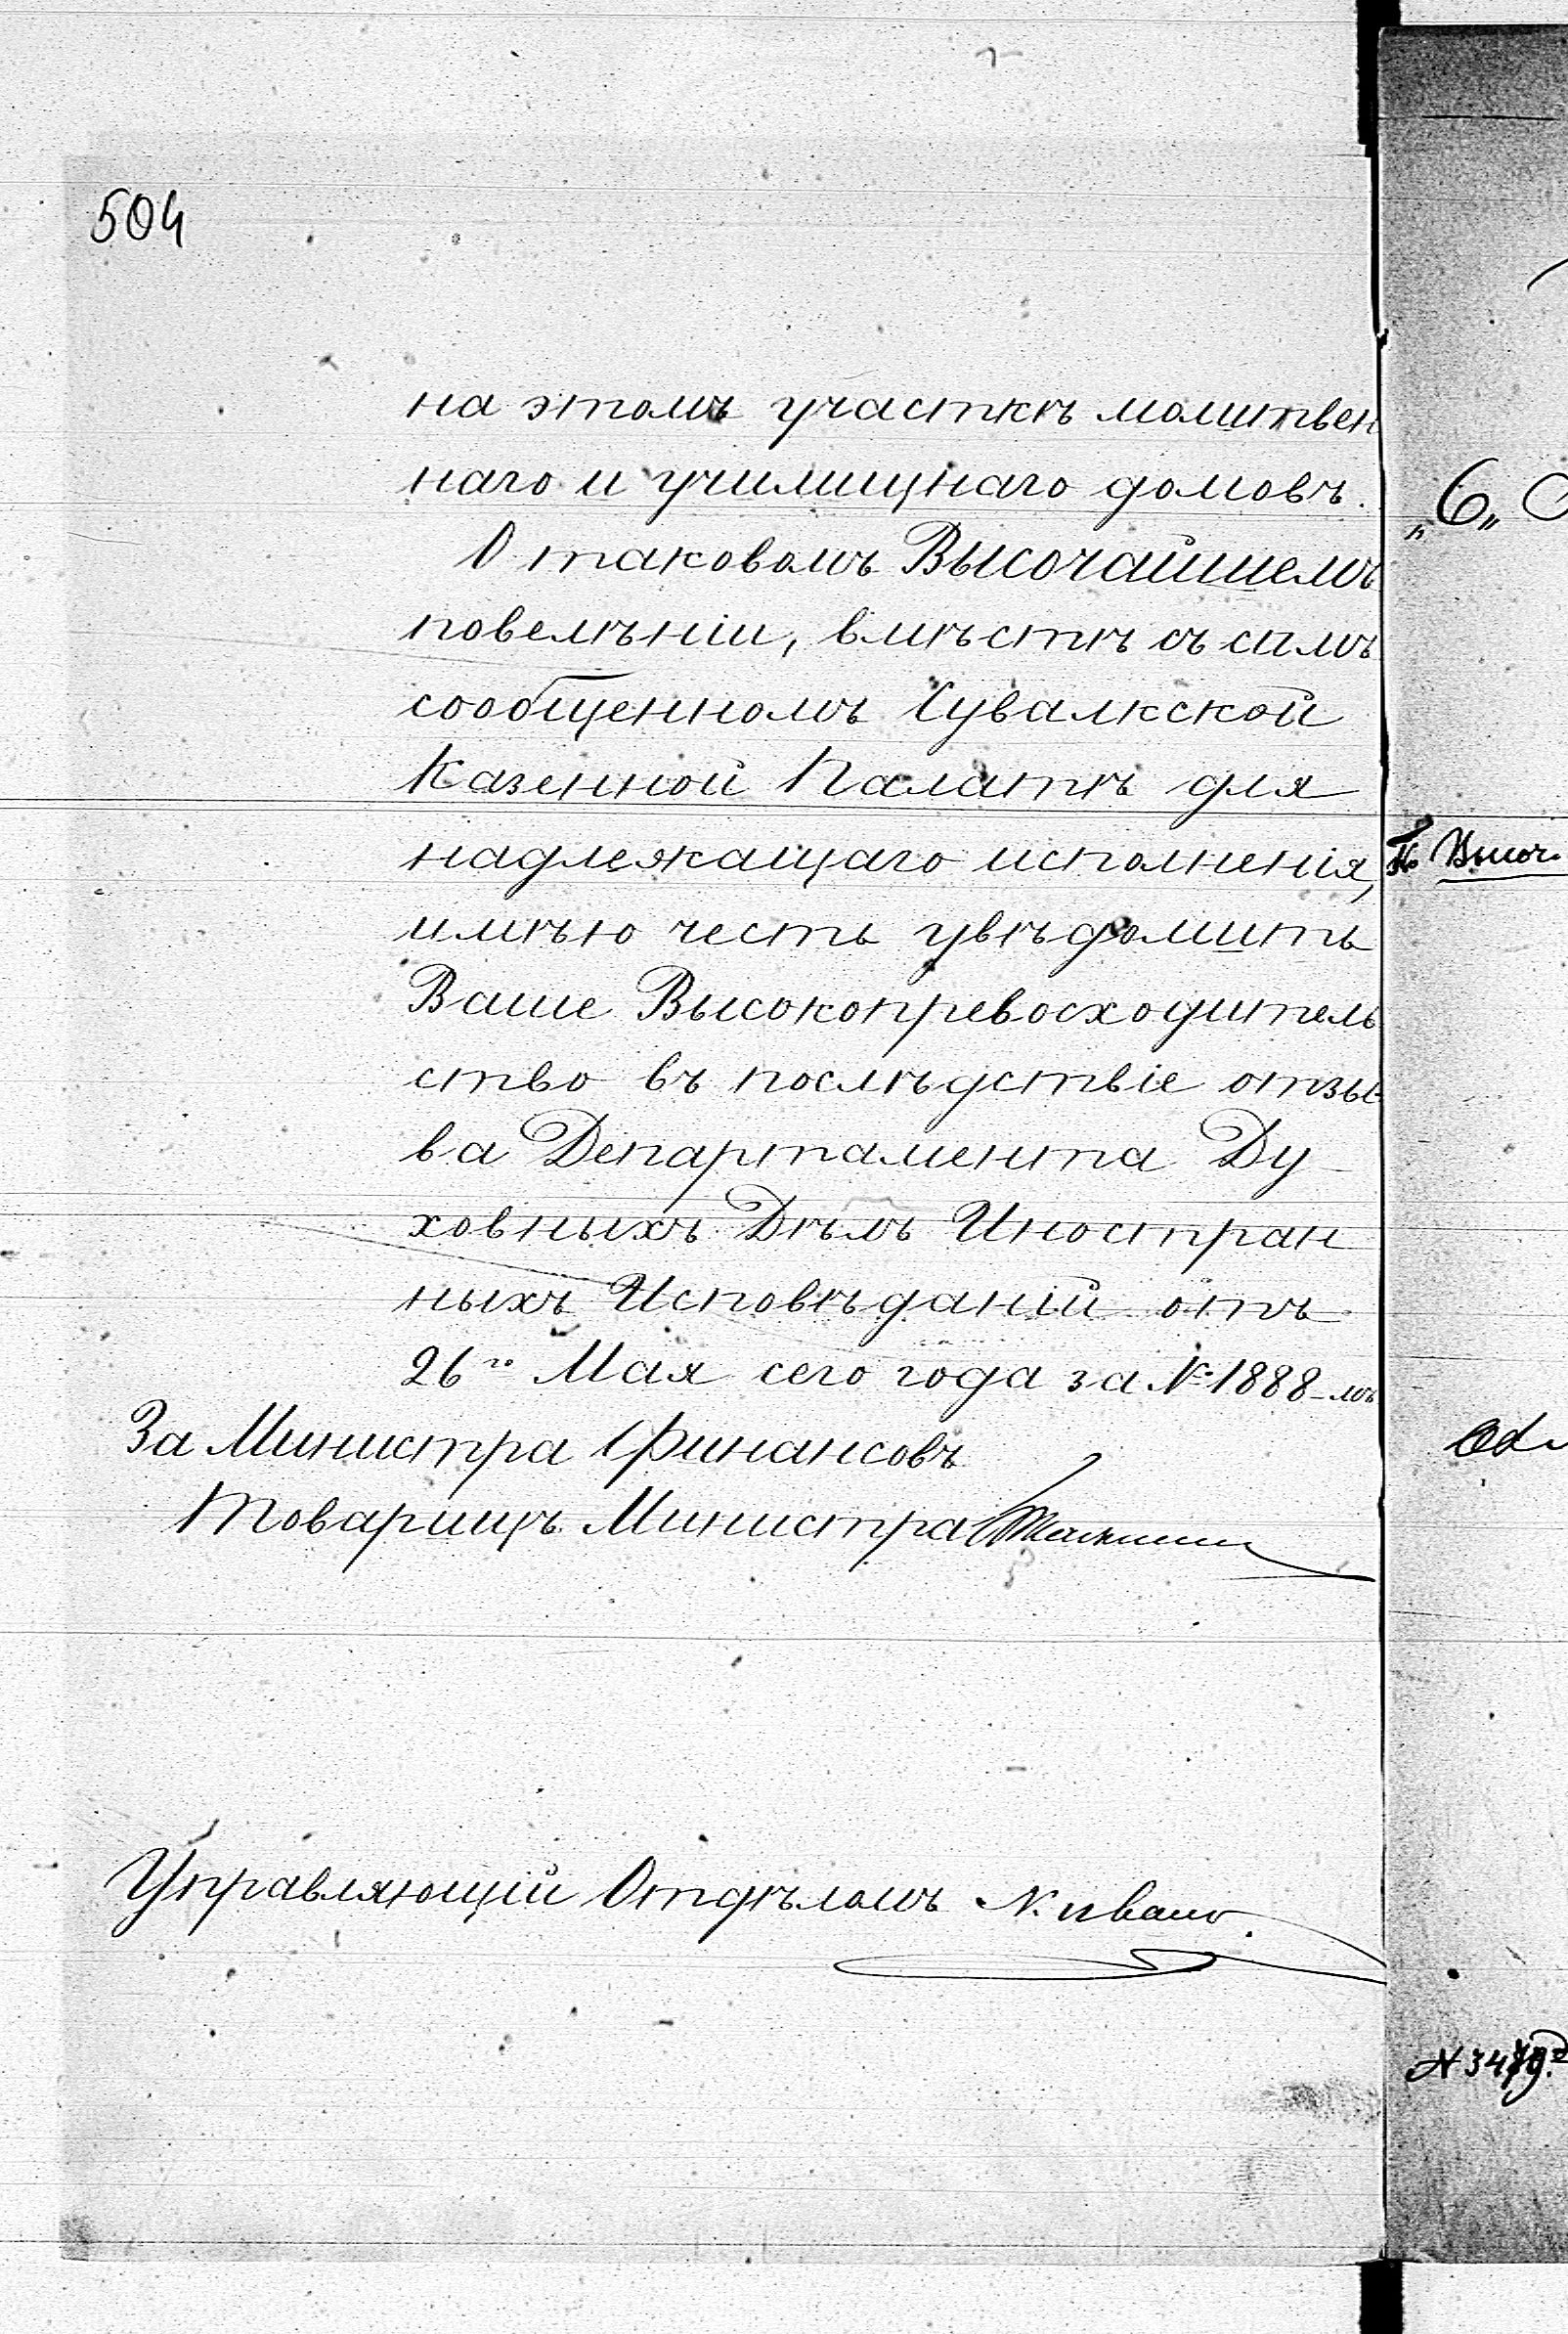 504
на этомъ участкѣ молитвен
наго и училищнаго домовъ.
О таковомъ Высочайшемъ
повелѣніи, вмѣстѣ съ симъ
сообщенномъ Сувалкской
Казенной Палатѣ для
надлежащаго исполненія,
имѣю честь увѣдомить
Ваше Высокопревосходитель
ство въ послѣдствіе отзы-
ва Департамента Ду-
ховныхъ Дѣлъ Иностран
ныхъ Исповѣданій отъ
26го Мая сего года за № 1888-мъ
За Министра Финансовъ
Товарищъ Министра
Управляющій Отдѣломъ
„6„
Высоч.